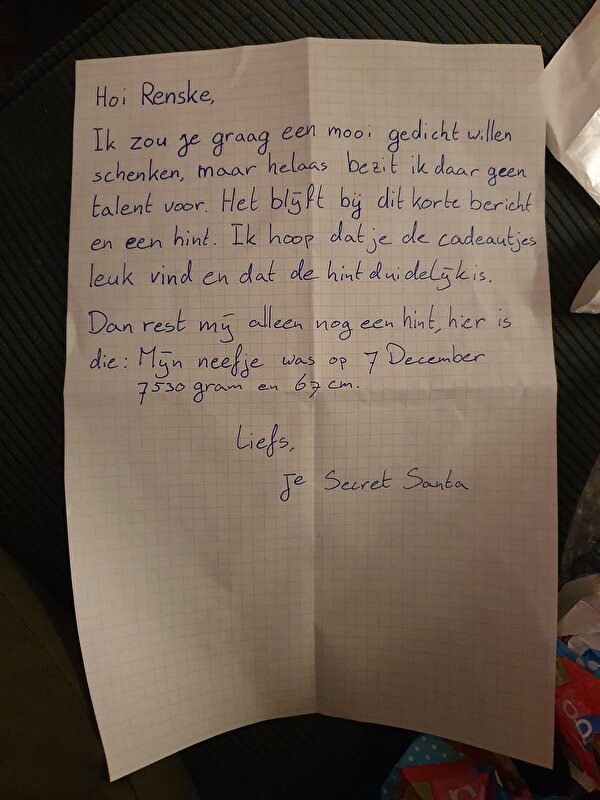 Hoi Renske,
Ik zou je graag een mooi gedicht willen
schenken, maar helaas bezit ik daar geen
talent voor. Het blijft bij dit korte bericht
en een hint. Ik hoop dat je de cadeautjes
leuk vind en dat de hint duidelijk is.
Dan rest mij alleen nog een hint, hier is
die: Mijn neefje was op 7 December
7530 gram en 67 cm.
Liefs,
Je Secret Santa